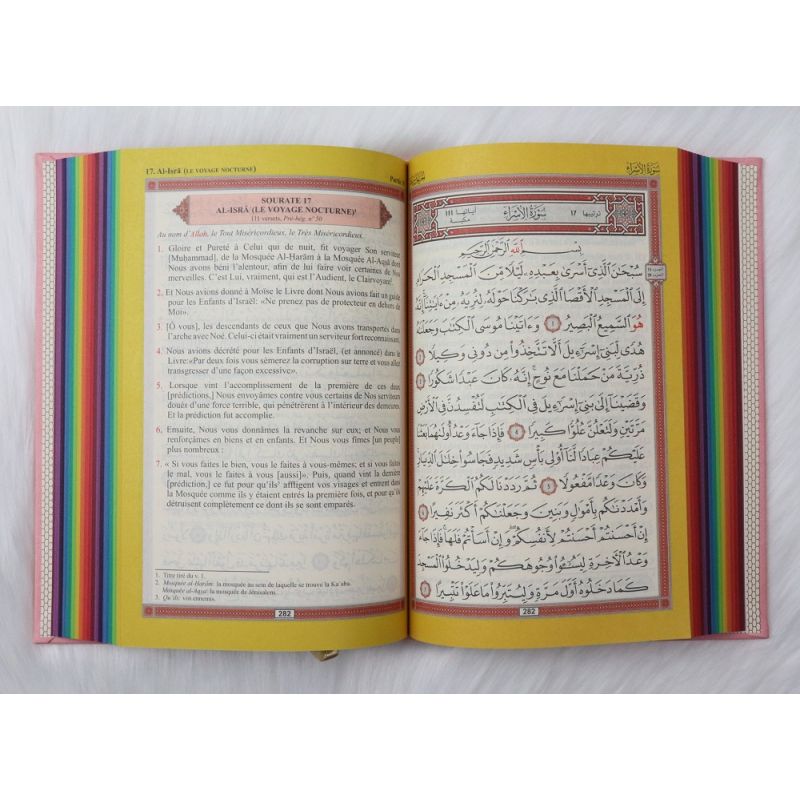 17. Al-Isrā (LE VOYAGE NOCTURNE)
SOURATE 17
AL-ISRĀ (LE VOYAGE NOCTURNE)¹
111 versets, Pré-hég. n° 50
Au nom d'Allah, le Tout Miséricordieux, le Très Miséricordieux.
1. Gloire et Pureté à Celui qui de nuit, fit voyager Son serviteur
[Muhammad], de la Mosquée Al-Ḥarām à la Mosquée Al-Aqṣā dont
Nous avons béni l'alentour, afin de lui faire voir certaines de Nos
merveilles. C'est Lui, vraiment, qui est l'Audient, le Clairvoyant!
2. Et Nous avions donné à Moïse le Livre dont Nous avions fait un guide
pour les Enfants d'Israël: «Ne prenez pas de protecteur en dehors de
Moi».
3. [Ô vous], les descendants de ceux que Nous avons transportés dans
l'arche avec Noé. Celui-ci était vraiment un serviteur fort reconnaissant.
4. Nous avions décrété pour les Enfants d'Israël, (et annoncé) dans le
Livre:«Par deux fois vous sèmerez la corruption sur terre et vous allez
transgresser d'une façon excessive».
5. Lorsque vint l'accomplissement de la première de ces deux
[prédictions,] Nous envoyâmes contre vous certains de Nos serviteurs
doués d'une force terrible, qui pénétrèrent à l'intérieur des demeures.
Et la prédiction fut accomplie.
6. Ensuite, Nous vous donnâmes la revanche sur eux; et Nous vous
renforçâmes en biens et en enfants. Et Nous vous fîmes [un peuple]
plus nombreux:
7. « Si vous faites le bien, vous le faites à vous-mêmes; et si vous faites
le mal, vous le faites à vous [aussi]». Puis, quand vint la dernière
[prédiction,] ce fut pour qu'ils³ affligent vos visages et entrent dans
la Mosquée comme ils y étaient entrés la première fois, et pour qu'ils
détruisent complètement ce dont ils se sont emparés.
1. Titre tiré du v. 1.
2. Mosquée al-Ḥarām: la mosquée au sein de laquelle se trouve la Ka'aba.
Mosquée al-Aqṣa: la mosquée de Jérusalem.
3. Qu'ils: vos ennemis.
282
سُورَةُ الإِسْرَاءِ
ترتيبها ١٧ سُورَةُ الإِسْرَاءِ آياتها ١١١ مكية
بِسْمِ اللَّهِ الرَّحْمَٰنِ الرَّحِيمِ
سُبْحَٰنَ الَّذِي أَسْرَىٰ بِعَبْدِهِ لَيْلًا مِّنَ الْمَسْجِدِ الْحَرَامِ
إِلَى الْمَسْجِدِ الْأَقْصَا الَّذِي بَٰرَكْنَا حَوْلَهُ لِنُرِيَهُ مِنْ ءَايَٰتِنَا إِنَّهُ
هُوَ السَّمِيعُ الْبَصِيرُ ١ وَءَاتَيْنَا مُوسَى الْكِتَٰبَ وَجَعَلْنَٰهُ
هُدًى لِّبَنِي إِسْرَٰٓءِيلَ أَلَّا تَتَّخِذُوا مِن دُونِي وَكِيلًا ٢
ذُرِّيَّةَ مَنْ حَمَلْنَا مَعَ نُوحٍ إِنَّهُ كَانَ عَبْدًا شَكُورًا ٣
وَقَضَيْنَا إِلَىٰ بَنِي إِسْرَٰٓءِيلَ فِي الْكِتَٰبِ لَتُفْسِدُنَّ فِي الْأَرْضِ
مَرَّتَيْنِ وَلَتَعْلُنَّ عُلُوًّا كَبِيرًا ٤ فَإِذَا جَاءَ وَعْدُ أُولَىٰهُمَا بَعَثْنَا
عَلَيْكُمْ عِبَادًا لَّنَا أُولِي بَأْسٍ شَدِيدٍ فَجَاسُوا خِلَٰلَ الدِّيَارِ
وَكَانَ وَعْدًا مَّفْعُولًا ٥ ثُمَّ رَدَدْنَا لَكُمُ الْكَرَّةَ عَلَيْهِمْ
وَأَمْدَدْنَٰكُم بِأَمْوَٰلٍ وَبَنِينَ وَجَعَلْنَٰكُمْ أَكْثَرَ نَفِيرًا ٦
إِنْ أَحْسَنتُمْ أَحْسَنتُمْ لِأَنفُسِكُمْ وَإِنْ أَسَأْتُمْ فَلَهَا فَإِذَا جَاءَ
وَعْدُ الْءَاخِرَةِ لِيَسُءُوا وُجُوهَكُمْ وَلِيَدْخُلُوا الْمَسْجِدَ
كَمَا دَخَلُوهُ أَوَّلَ مَرَّةٍ وَلِيُتَبِّرُوا مَا عَلَوْا تَتْبِيرًا ٧
282